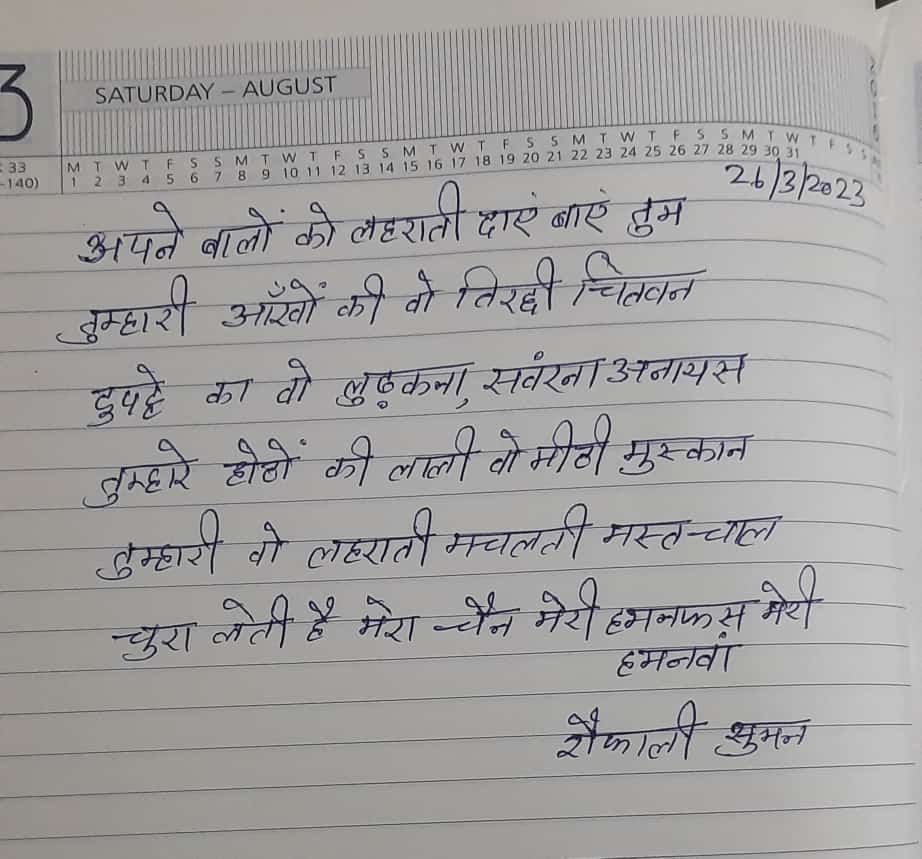 3
SATURDAY – AUGUST
33
-140)
M T W T F S S M T W T F S S M T W T F S S M T W T F S S M T W T F S S
1 2 3 4 5 6 7 8 9 10 11 12 13 14 15 16 17 18 19 20 21 22 23 24 25 26 27 28 29 30 31
26/3/2023
अपने बालों को लहराती दाएं बाएं तुम
तुम्हारी आँखों की वो तिरछी चितवन
दुपट्टे का वो लुढ़कना, सवंरना अनायस
तुम्हारे होठों की लाली वो मीठी मुस्कान
तुम्हारी वो लहराती मचलती मस्त चाल
चुरा लेती है मेरा चैन मेरी हमनफस मेरी
हमनवां
शैफाली सुमन